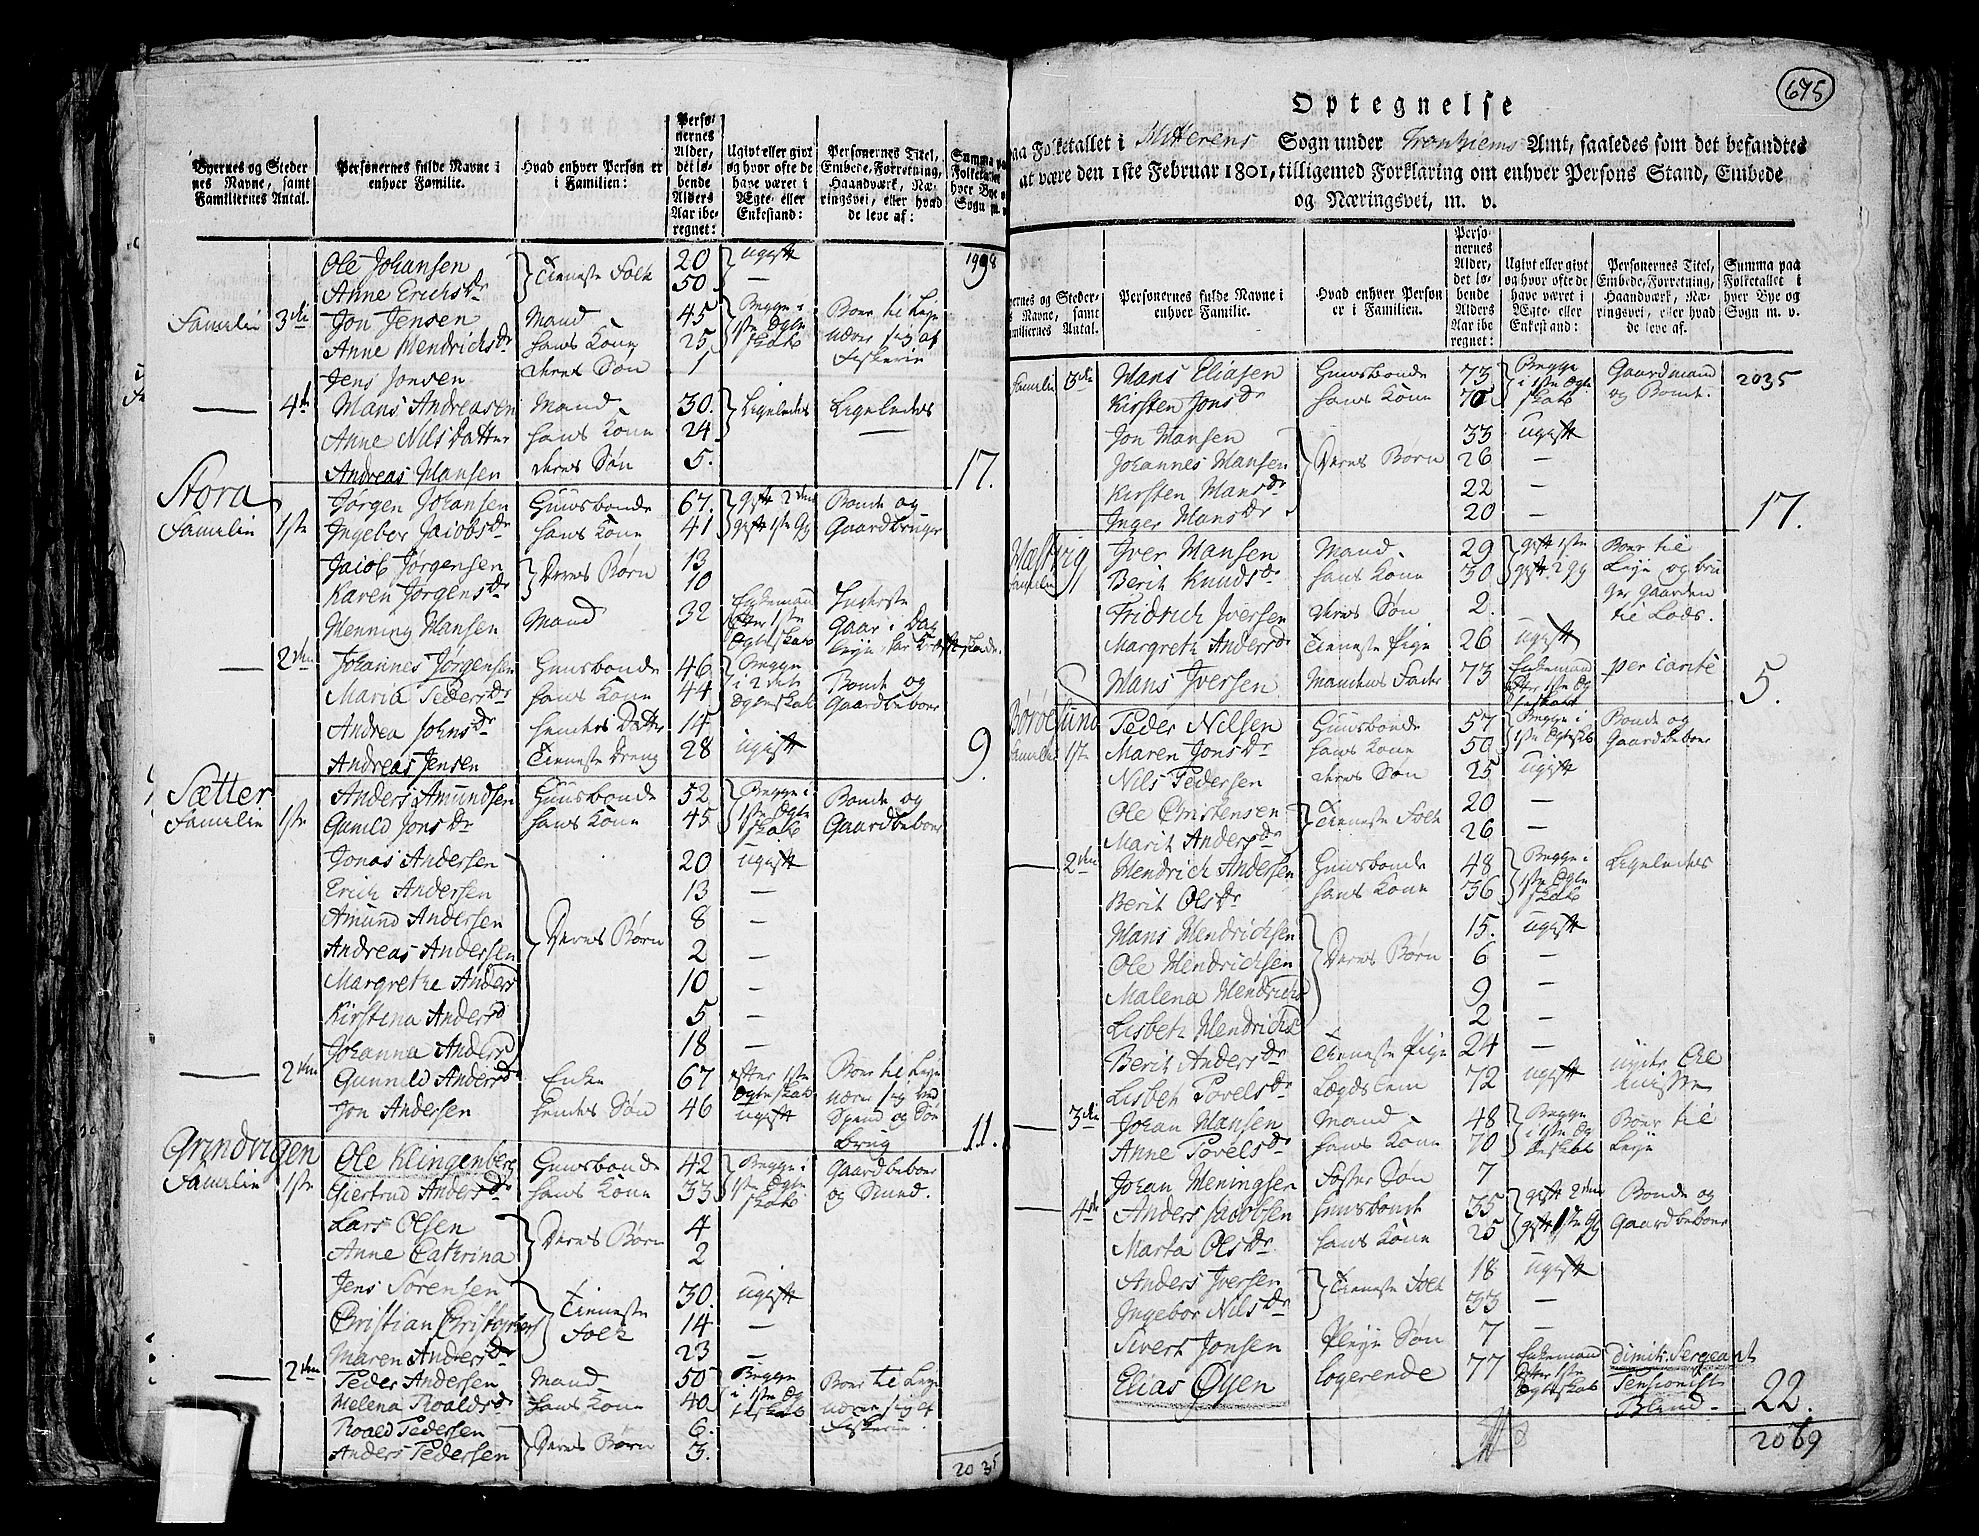 Byernes og Steder nes Navne, samt Familiernes Antal.
Personernes fulde Navne i enhver Familie.
Hvad enhver Person er i Familien:
Perso-nernes Alder, det lø-bende Alders Aar ibe-regnet:
Ugivt eller givt og hvor ofte de have været i Ægte- eller Enkestand:
Personernes Titel, Embede, Forretning, Haandværk, Næ-ringsvei, eller hvad de leve af:
Summa paa Folketallet i hver Bye og Sogn m. v.
Ole Johansen Tieneste Folk 20 ugift 1998
Anne Erichsdr 50 —
Familie 3die Jon Jensen Mand 45 Begge i 1ste Ægteskab Boer til Leje nærer sig af Fiskerie
Anne Hendrichsdr hans Kone 25
Jens Jonsen deres Søn 1
— 4de Hans Andreasen Mand 30. Ligeledes Ligeledes
Anne Nils Datter hans Kone 24 —
Andreas Hansen deres Søn 5. 17.
Stora
Familie 1ste Jørgen Johansen Huusbonde 67. gift 2den Bonde og Gaardbruger
Ingebor Jacobsdr hans Kone 41 gift 1ste Gg
Jacob Jørgensen Deres Børn 13
Karen Jørgensdr 10
Henning Hansen Mand 32 Enkemand Efter 1ste Ægteskab Inderste Gaar i Dag Leje
— 2den Johannes Jørgensen Huusbonde 46 Begge i 2det Ægteskab Bonde og Gaardbeboer
Maria Pedersdr hans Kone 44
Andrea Johnsdr hendes Datter 14
Andreas Jensen Tieneste Dreng 28 ugift 9.
Sætter
Familie 1ste Anders Amundsen Huusbonde 52 Begge i 1ste Ægteskab Bonde og Gaardbeboer
Gunild Jonsdr hans Kone 45
Jonas Andersen Deres Børn 20 ugift
Erich Andersen 13 —
Amund Andersen 8 —
Andreas Andersen 2 —
Margrethe Andersd 10 —
Kirstina Andersd 5 —
Johanna Andersd 18 —
— 2den Gunnild Andersdr Enke 67 efter 1ste Ægteskab Boer til Leje nærer sig ved Spind og Søe brug
Jon Andersen hendes Søn 46 ugift 11.
Grindvigen
Familie 1ste Ole Klingenberg Huusbonde 42 Begge i 1ste Ægteskab Gaardbeboer og Smed.
Giertrud Andersdr hans Kone 33
Lars Olsen Deres Børn 4
Anne Cathrina 2
Jens Sørensen Tieneste Folk 30. ugift
Christian Christophers 14 —
Maren Andersdr 23 —
— 2den Peder Andersen Mand 50 Begge i 1ste Ægteskab Boer til Leje nærer sig af Fiskerie.
Helena Roaldsdr hans Kone 40
Roald Pedersen Deres Børn 6.
Anders Pedersen 3.
2035
695
Optegnelse
paa Folketallet i Hitterens Sogn under Tronhiems Amt, saaledes som det befandtes
at være den 1ste Februar 1801, tilligemed Forklaring om enhver Persons Stand, Embede
og Næringsvei, m. v.
ernes og Steder-s Navne, samt miliernes Antal.
Personernes fulde Navne i enhver Familie.
Hvad enhver Person er i Familien.
Perso-nernes Alder, det lø-bende Alders Aar ibe-regnet:
Ugivt eller givt og hvor ofte de have været i Ægte- eller Enkestand:
Personernes Titel, Embede, Forretning, Haandværk, Næ-ringsvei, eller hvad de leve af.
Summa paa Folketallet i hver Bye og Sogn m. v.
Familie 3die Hans Eliasen Huusbonde 73 Begge i 1ste Ægteskab Gaardmand og Bonde. 2035
Kirsten Jonsdr hans Kone 70
Jon Hansen Deres Børn 33 ugift
Johannes Hansen 26 —
Kirsten Hansdr 22 —
Inger Hansdr 20 — 17.
Hæstvig
Familie Iver Hansen Mand 29 gift 1ste Boer til Leje og bruger Gaarden til Lods.
Berit Knudsdr hans Kone 30 gift 2 Gg
Fridrich Iversen deres Søn 2.
Margreth Andersdr Tieneste Pige 26 ugift
Hans Iversen Mandens Fader 73 Enkemand Efter 1ste Ægteskab per carité 5.
Børøesund
Familie 1ste Peder Nilsen Huusbonde 57 Begge i 1ste Ægteskab Bonde og Gaardbeboer
Maren Jonsdr hans Kone 50
Nils Pedersen deres Søn 25 ugift
Ole Christensen Tieneste Folk 20 —
Marit Andersdr 26 —
— 2den Hendrich Andersen Huusbonde 48 Begge i 1ste Ægteskab Ligeledes
Berit Olsdr hans Kone 36
Hans Hendrichsen Deres Børn 15. ugift
Ole Hendrichsen 6 —
Malena Hendrichs 9 —
Lisbeth Hendrichsd 2 —
Berit Andersdr Tieneste Pige 24 —
Lisbeth Povelsdr Lægdslem 72 ugift nyder Almisse
3die Johan Hansen Mand 48 Begge i 1ste Ægteskab Boer til Leje
Anne Povelsdr hans Kone 70
Johan Heningsen Foster Søn 7
— 4de Anders Jacobsen Huusbonde 35 gift 2den Bonde og Gaardbeboer
Marta Olsdr hans Kone 25 gift 1ste Gg
Anders Iversen Tieneste Folk 18 ugift
Ingebor Nilsdr 33 —
Sivert Jonsen Pleje Søn 7 —
Elias Øyen logerende 77 Enkemand Efter 1ste Ægteskab Dimit: Sergeant Pensionist Blind. 22.
2069